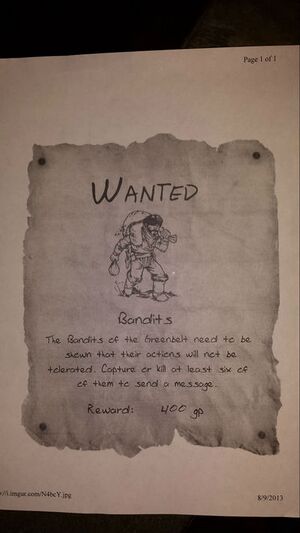 Page 1 of 1
WANTED
Bandits
The Bandits of the Greenbelt need to be
shown that their actions will not be
tolerated. Capture or kill at least six of
of them to send a message.
Reward: 400 gp
//i.imgur.com/N4bcY.jpg
8/9/2013